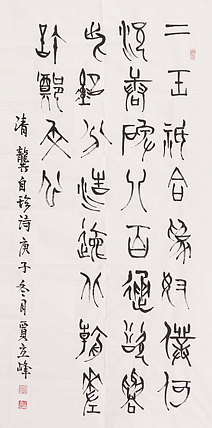 二王祇合爲奴僕何
況唐碑八百通欲與
此銘分浩逸北朝差
許鄭文公
清龔自珍詩庚子冬月賈立峰